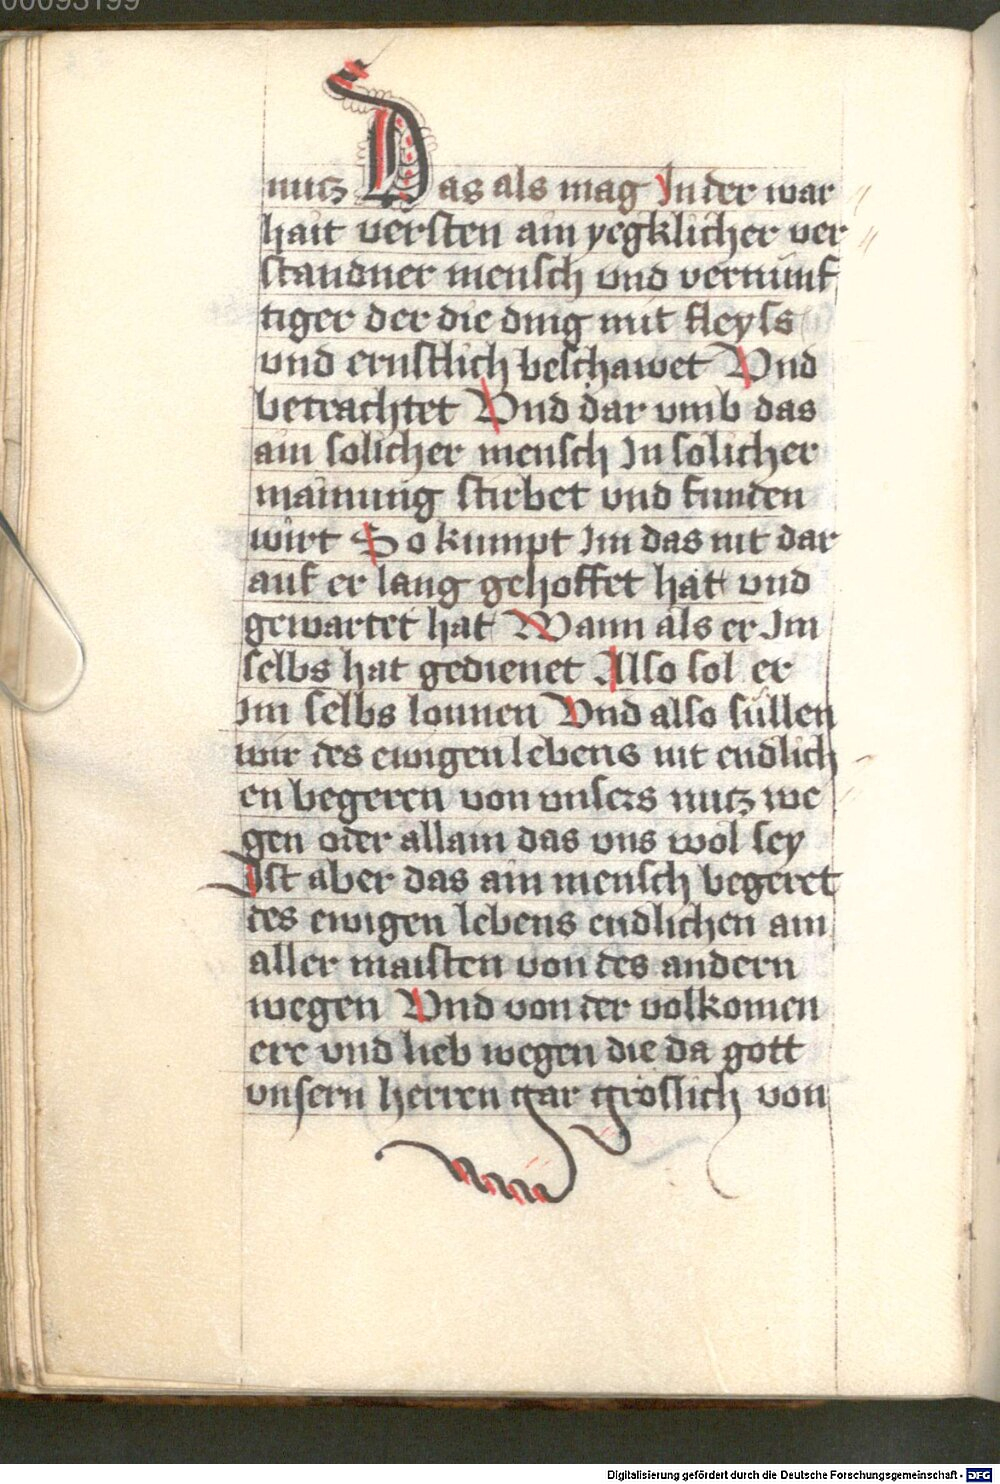 00095199
nutz Das als mag In der war
hait versten ain yegklicher ver
standner mensch und vernünf
tiger der die ding mit fleyss
und ernstlich beschawet Vnd
betrachtet Vnd dar vmb das
ain solicher mensch In solicher
mainung stirbet vnd funden
wirt So kumpt Im das nit dar
auf er lang gehoffet hat vnd
gewartet hat Wann als er Im
selbs hat gedienet Also sol er
im selbs lonnen Vnd also süllen
wir des ewigen lebens nit endlich
en begeren von vnsers nutz we
gen oder allain das vns wol sey
Ist aber das ain mensch begeret
des ewigen lebens endlichen am
aller maisten von des andern
wegen Vnd von der volkomen
ere vnd lieb wegen die da gott
vnsern herren gar grösslich von
Digitalisierung gefördert durch die Deutsche Forschungsgemeinschaft - DFG